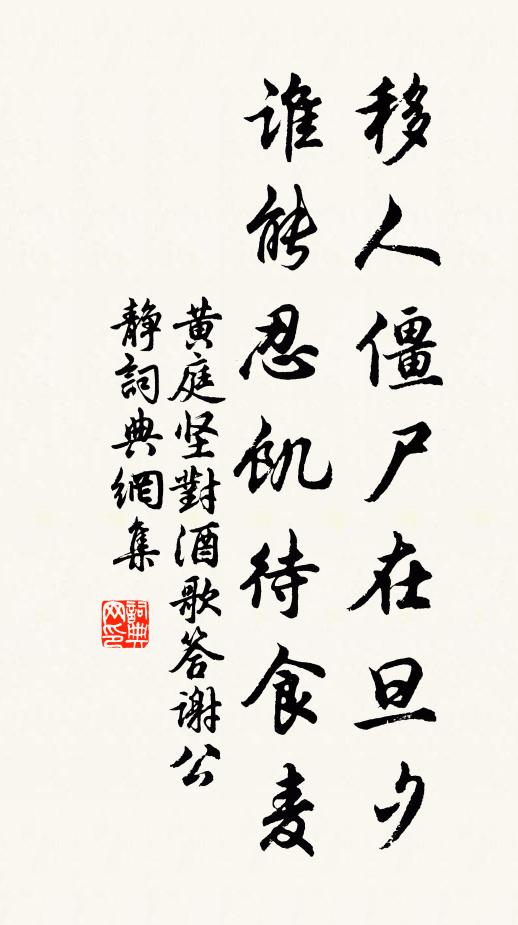 移人僵尸在旦夕
谁能忍飢待食麦
黄庭坚對酒歌答谢公
静詞典網集
詞典
网印